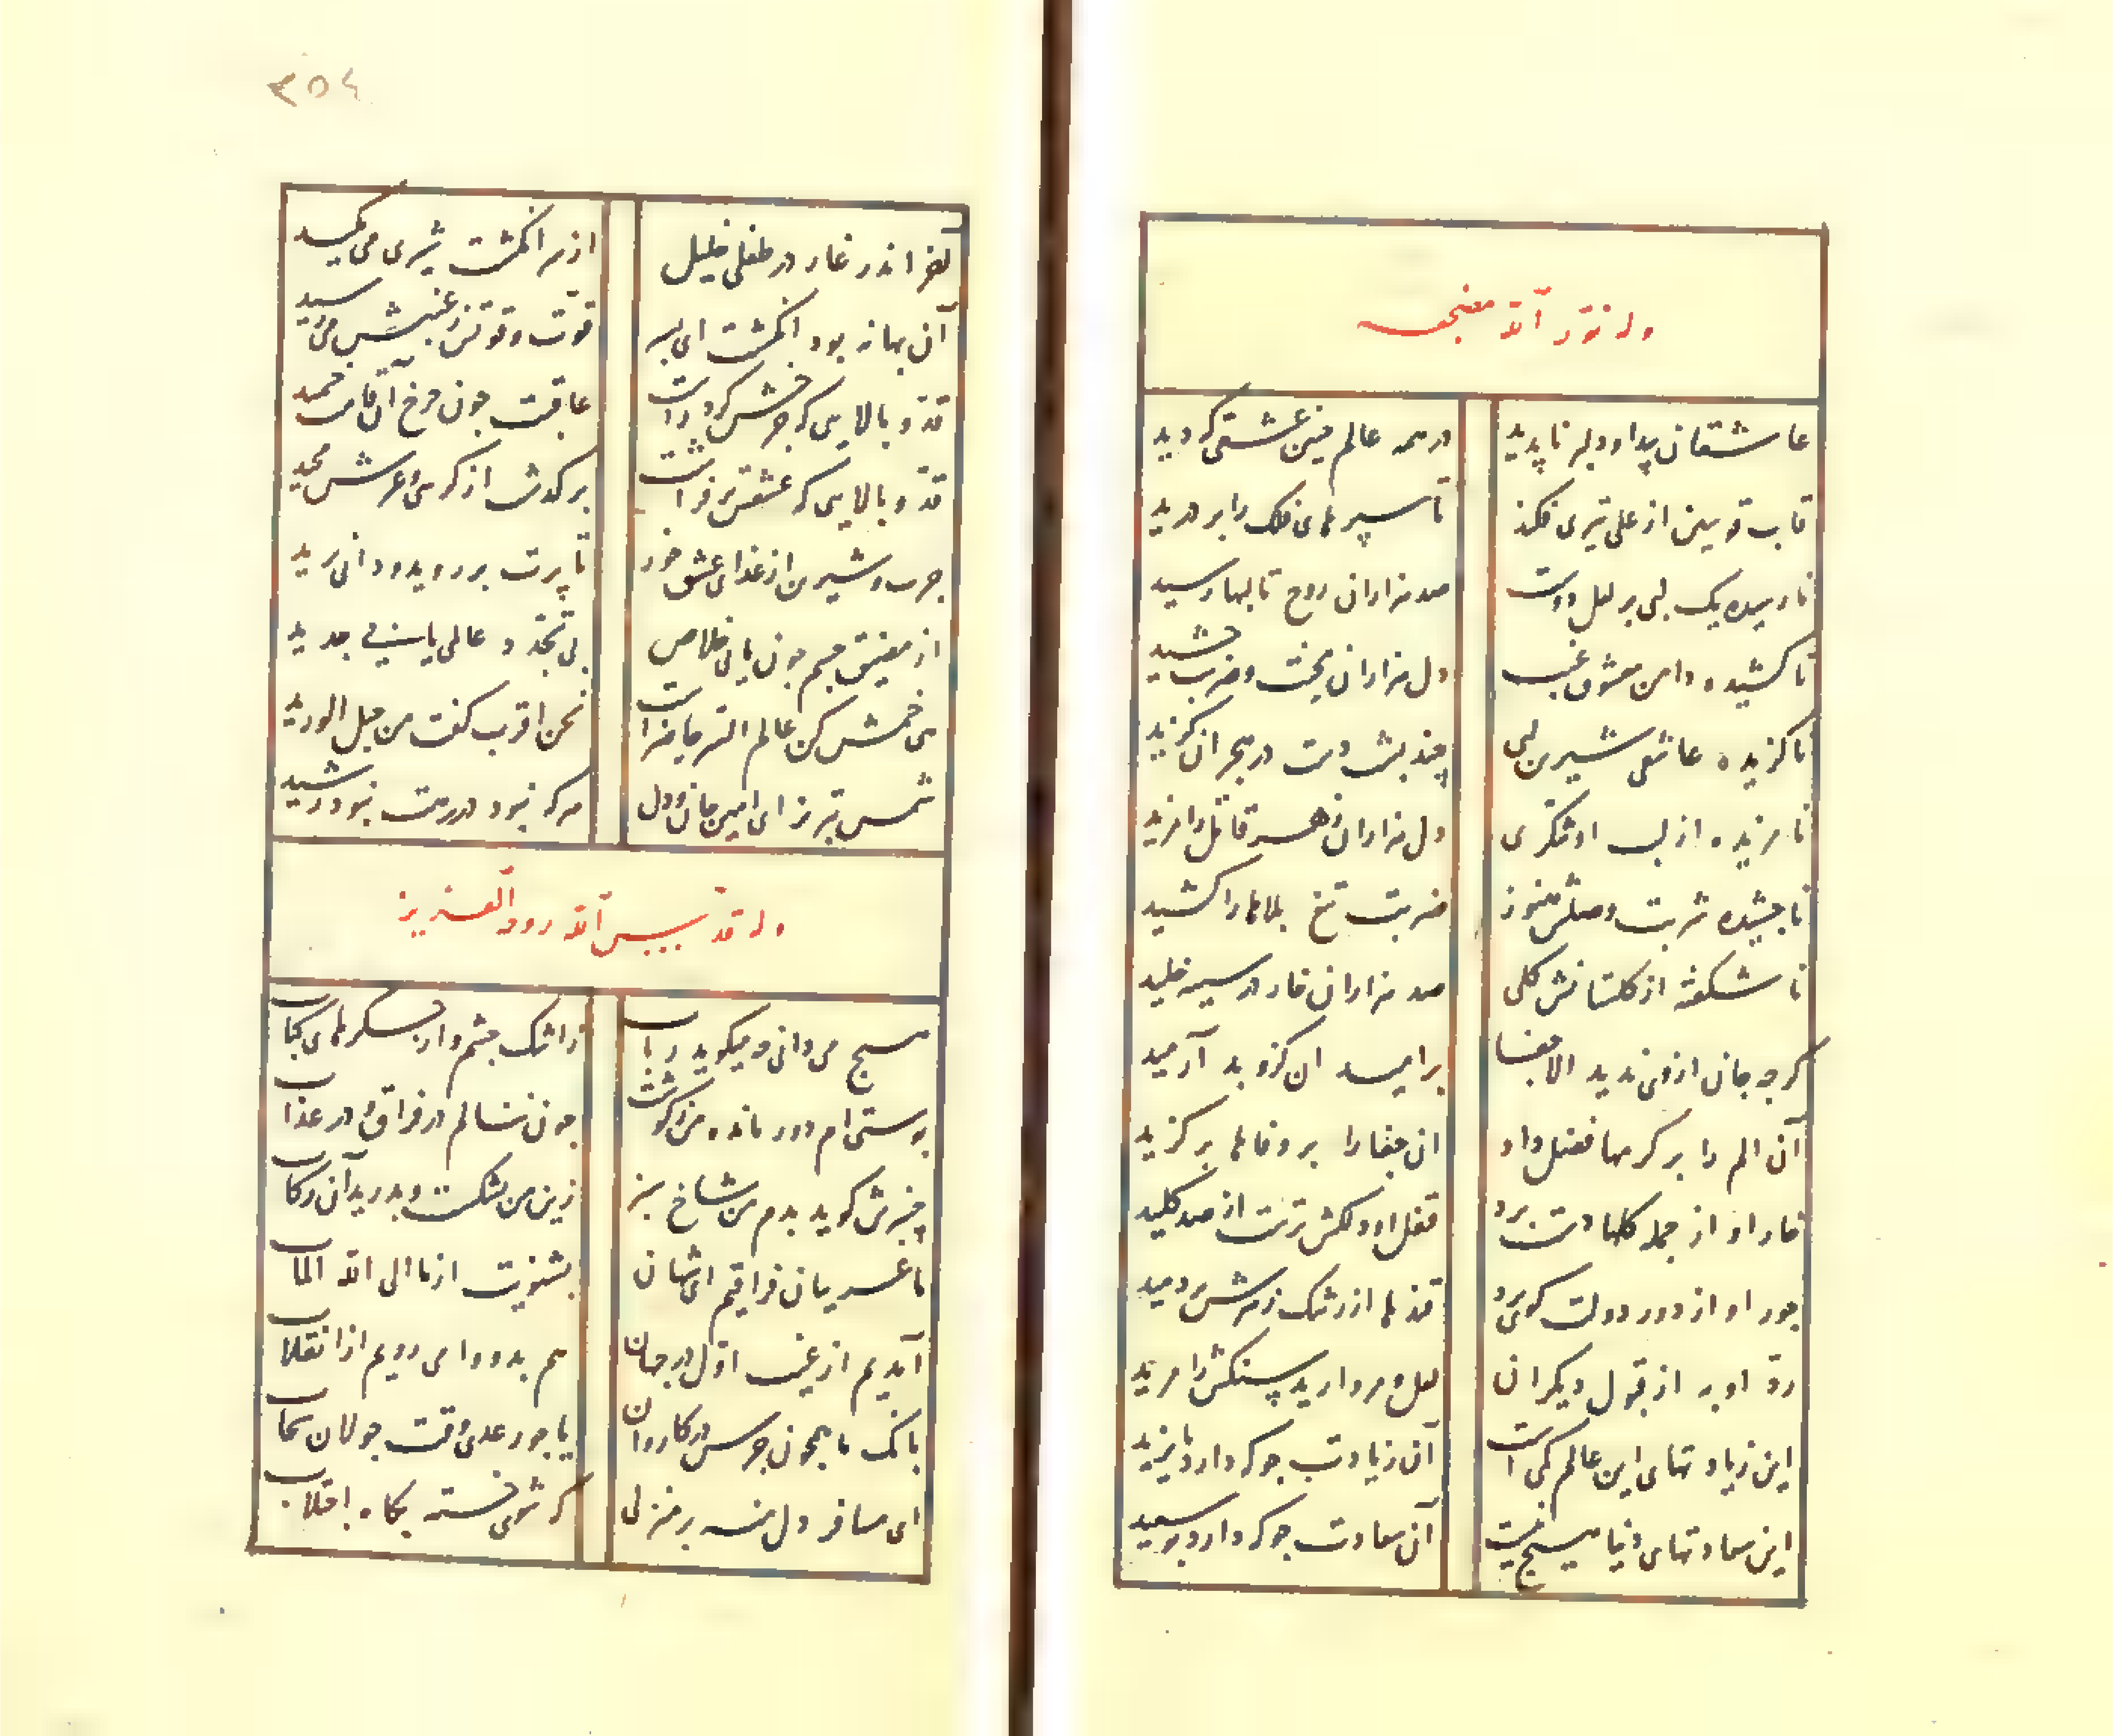 وله نوّر الله مضجعه
عاشقان پیدا و دلبر ناپدید
در همه عالم چنین عشقی که دید
قاب قوسین از علی تیری فکند
تا سپرهای فلک را بر درید
نارسیده یک لبی بر لعل دوست
صد هزاران روح تا لبها رسید
ناکشیده دامن معشوق غیب
دل هزاران محنت و ضربت چشید
ناگزیده عاشقی شیرین لبی
چند پشت دست در هجران گزید
نامزیده از لب او شکری
دل هزاران زهر قاتل را مزید
ناچشیده شربت وصلش هنوز
ضربت تیغ بلاها را کشید
ناشکفته از گلستانش گلی
صد هزاران خار در سینه خلید
گرچه جان از وی ندید الا جفا
بر امید آن کزو بد آرمید
آن الم را بر کرمها فضل داد
آن جفا را بر وفاها برگزید
خار او از جمله گلها دست برد
قفل او دلکش ترست از صد کلید
جور او از دور دولت گوی برد
قندها از رشک زهرش بردمید
ردّ او به از قبول دیگران
لعل و مروارید سنگش را مرید
این زیادتهای این عالم کمی است
آن زیادت جو که دارد بایزید
این سعادتهای دنیا هیچ نیست
آن سعادت جو که دارد بوسعید
۳۵٤
آخر اندر غار در طفلی خلیل
از سر انگشت شیری می مکید
آن بهانه بود انگشت ای پسر
قوت و قوتش ز غیبش می رسید
قدّ و بالایی که چرخش کرد راست
عاقبت چون چرخ آن قامت خمید
قدّ و بالایی که عشقش برفراشت
برگذشت از کرسی و عرش مجید
چرب و شیرین از غذای عشق خور
تا پرت برروید و دانی پرید
از مضیق جسم چون یابی خلاص
بی تجدّد عالمی یابی جدید
هی خمش کن عالم السّر حاضر است
نحن اقرب گفت من حبل الورید
شمس تبریز ای امین جان و دل
هر که نبود در رهت نبود رشید
وله قدّس الله روحه العزیز
هیچ می دانی چه میگوید رباب
ز اشک چشم و از جگرهای کباب
پوستی ام دور مانده من ز گوشت
چون ننالم در فراق و در عذاب
چنبرش گوید بدم من شاخ سبز
زین من بشکست و بدرید آن رکاب
ما غریبان فراقیم ای شهان
بشنویت از ما الی الله المآب
آمدیم از غیب اوّل در جهان
هم بدو وا می رویم از انقلاب
بانگ ما همچون جرس در کاروان
یا چو رعدی وقت جولان سحاب
ای مسافر دل منه بر منزلی
که شوی خسته بگاه اجتلاب